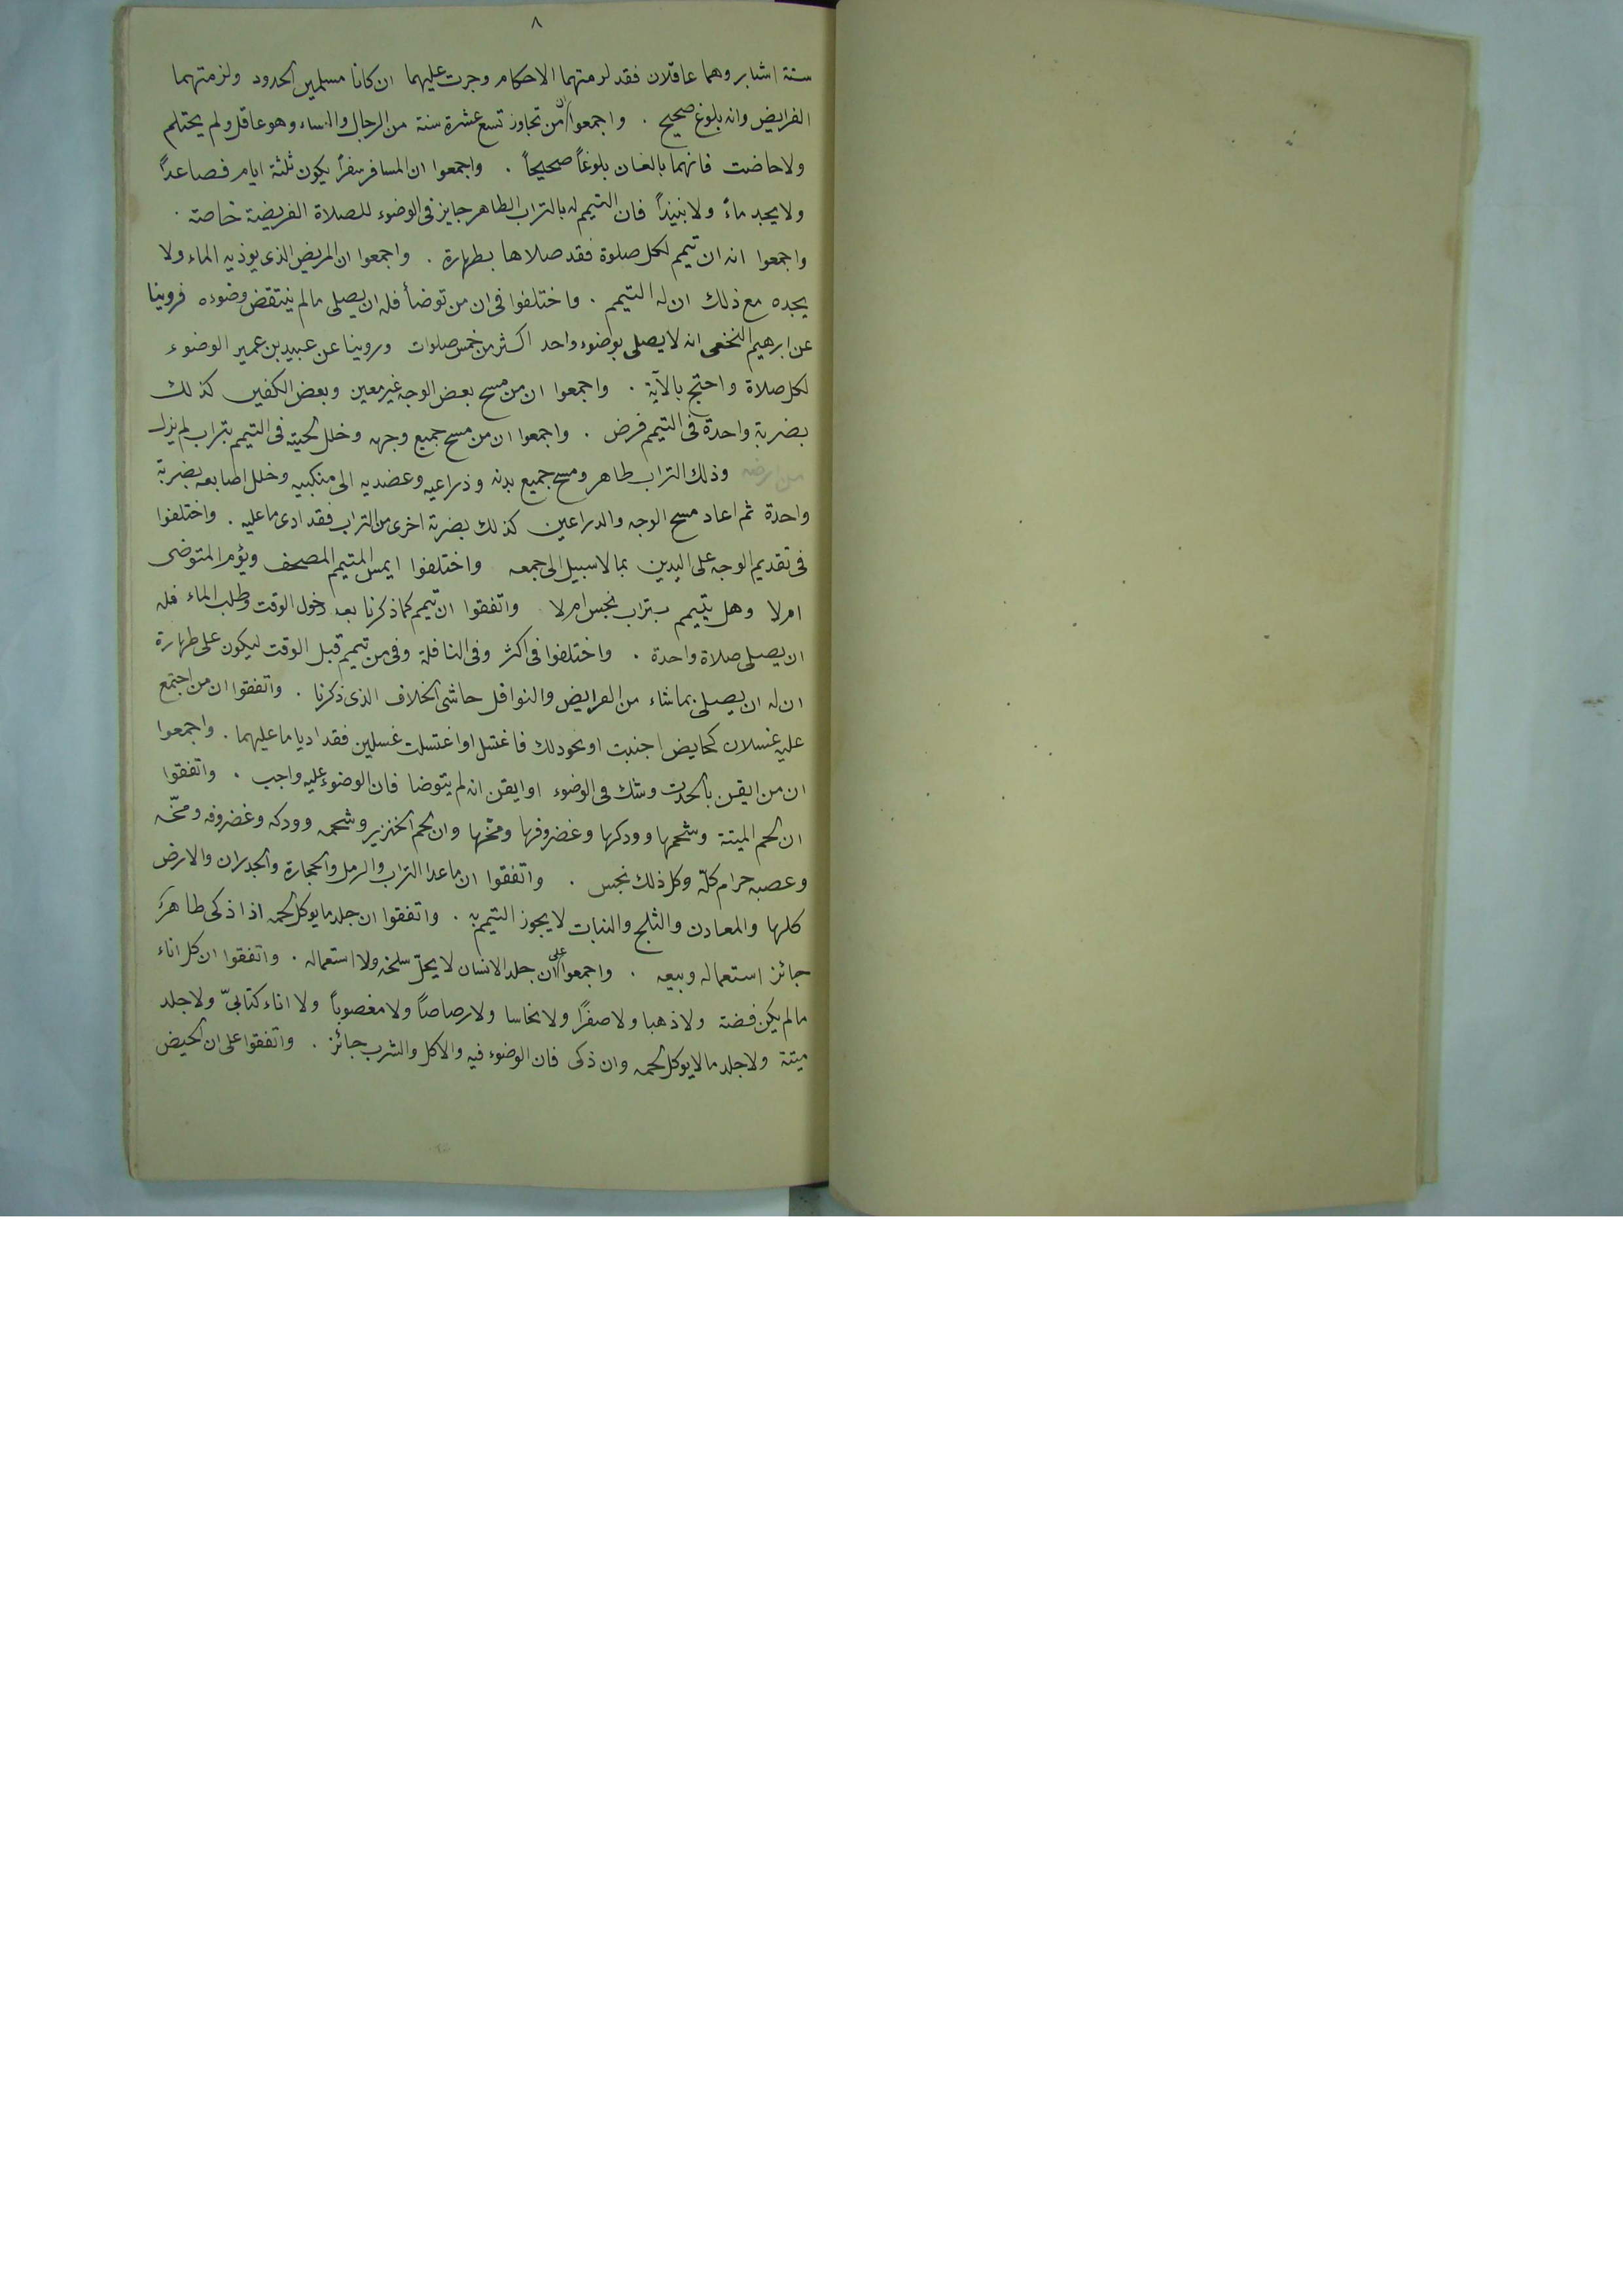 ٨
ستة اشبار وهما عاقلان فقد لزمتهما الاحكام وجرت عليهما ان كانا مسلمين الحدود ولزمتهما
الفرايض وانه بلوغ صحيح . واجمعوا ان من تجاوز تسع عشرة سنة من الرجال والنساء وهو عاقل ولم يحتلم
ولا حاضت فانهما بالغان بلوغاً صحيحاً . واجمعوا ان المسافر سفراً يكون ثلثة ايام فصاعداً
ولا يجد ماءً ولا نبيذاً فان التيمم له بالتراب الطاهر جايز فى الوضوء للصلاة الفريضة خاصة .
واجمعوا انه ان تيمم لكل صلوة فقد صلاها بطهارة . واجمعوا ان المريض الذى يوذيه الماء ولا
يجده مع ذلك ان له التيمم . واختلفوا فى ان من توضأ فله ان يصلى مالم ينتقض وضوءه فروينا
عن ابرهيم النخعى انه لا يصلى بوضوء واحد اكثر من خمس صلوات وروينا عن عبيد بن عمير الوضوء
لكل صلاة واحتج بالآية . واجمعوا ان من مسح بعض الوجه غير معين وبعض الكفين كذلك
بضربة واحدة فى التيمم فرض . واجمعوا ان من مسح جميع وجهه وخلل لحيته فى التيمم بتراب لم يزل
من ارضه وذلك التراب طاهر ومسح جميع يديه وذراعيه وعضديه الى منكبيه وخلل اصابعه بضربة
واحدة ثم اعاد مسح الوجه والدراعين كذلك بضربة اخرى من التراب فقد ادى ما عليه . واختلفوا
فى تقديم الوجه على اليدين بما لا سبيل الى جمعه واختلفوا ايمس المتيمم المصحف ويؤم المتوضى
ام لا وهل يتيمم بتراب نجس ام لا واتفقوا ان تيمم كما ذكرنا بعد دخول الوقت وطلب الماء فله
ان يصلى صلاة واحدة . واختلفوا فى اكثر وفى النافلة وفى من تيمم قبل الوقت ليكون على طهارة
ان له ان يصلى بما شاء من الفرايض والنوافل حاشى الخلاف الذى ذكرنا . واتفقوا ان من اجتمع
عليه غسلان كحايض اجنبت او نحو ذلك فاغتسل او اغتسلت غسلين فقد اديا ما عليهما . واجمعوا
ان من ايقن بالحدث وشك فى الوضوء او ايقن انه لم يتوضا فان الوضوء عليه واجب . واتفقوا
ان لحم الميتة وشحمها وودكها وغضروفها ومخها وان لحم الخنزير وشحمه وودكه وغضروفه ومخّه
وعصبه حرام كلّه وكل ذلك نجس . واتفقوا ان ما عدا التراب والرمل والحجارة والجدران والارض
كلها والمعادن والثلج والنبات لا يجوز التيمم به . واتفقوا ان جلد ما يوكل لحمه اذا ذكى طاهرٌ
جائز استعماله وبيعه . واجمعوا على ان جلد الانسان لا يحلّ سلخه ولا استعماله . واتفقوا ان كل اناء
مالم يكن فضة ولا ذهبا ولا صفراً ولا نحاسا ولا رصاصاً ولا مغصوباً ولا اناء كتابىّ ولا جلد
ميتة ولا جلد ما لا يوكل لحمه وان ذكى فان الوضوء فيه والاكل والشرب جائز . واتفقوا على ان الحيض